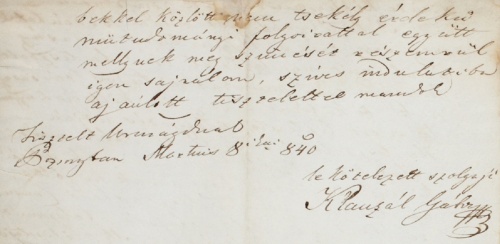 bekkel közlött nem tsekély érdekű
műtudományi folyóirattal együtt
mellynek meg szünését részemrül
igen sajnálom, szíves indulatiba
ajánlott tisztelettel maradok
Tisztelt Uraságodnak
Martius 8ikán 840
lekötelezett szolgája
Klauzál Gábor